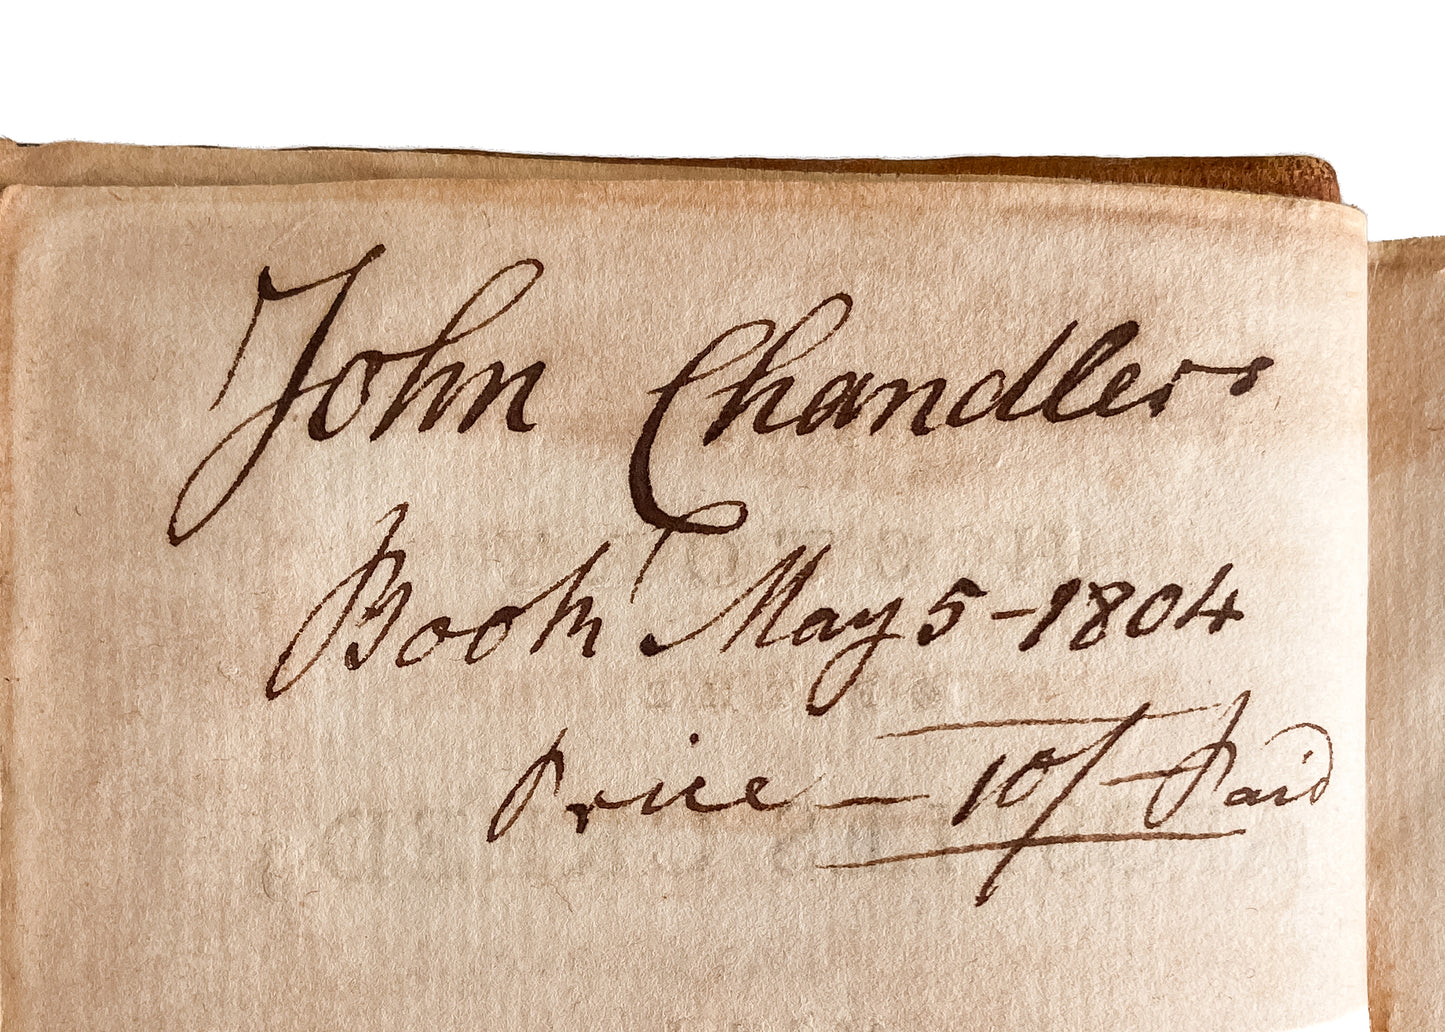 John Chandlers
Book May 5 – 1804
Price – 10/– Paid